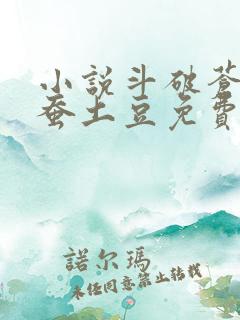 小説斗破蒼
蚕土豆免費
諾尔瑪
未经同意禁止转载